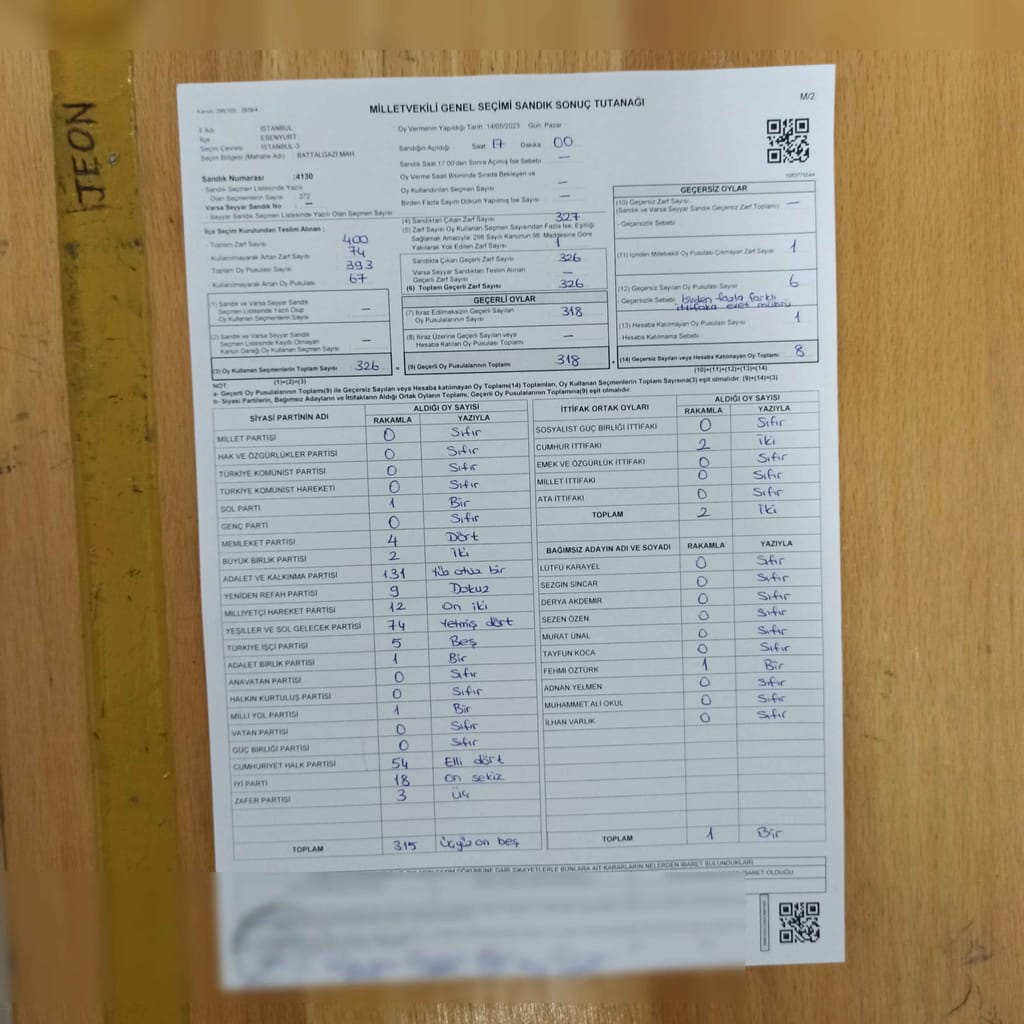 JEON
M/2
MİLLETVEKİLİ GENEL SEÇİMİ SANDIK SONUÇ TUTANAĞI
İl Adı İSTANBUL
İlçe ESENYURT
Seçim Çevresi İSTANBUL-3
Seçim Bölgesi (Mahalle Adı) BATTALGAZİ MAH.
Oy Vermenin Yapıldığı Tarih :14/05/2023 Gün: Pazar
Sandığın Açıldığı Saat 17 Dakika 00
Sandık Saat 17:00'den Sonra Açılmış İse Sebebi —
Oy Verme Saati Bitiminde Sırada Bekleyen ve
Oy Kullandırılan Seçmen Sayısı —
Birden Fazla Sayım Döküm Yapılmış İse Sayısı —
Sandık Numarası :4130
- Sandık Seçmen Listesinde Yazılı
Olan Seçmenlerin Sayısı 372
Varsa Seyyar Sandık No —
- Seyyar Sandık Seçmen Listesinde Yazılı Olan Seçmen Sayısı
İlçe Seçim Kurulundan Teslim Alınan :
- Toplam Zarf Sayısı 400
- Kullanılmayarak Artan Zarf Sayısı 74
- Toplam Oy Pusulası Sayısı 393
- Kullanılmayarak Artan Oy Pusulası 67
(1) Sandık ve Varsa Seyyar Sandık
Seçmen Listesinde Yazılı Olup
Oy Kullanan Seçmenlerin Sayısı —
(2) Sandık ve Varsa Seyyar Sandık
Seçmen Listesinde Kayıtlı Olmayan
Kanun Gereği Oy Kullanan Seçmen Sayısı —
(3) Oy Kullanan Seçmenlerin Toplam Sayısı 326
(1)+(2)=(3)
(4) Sandıktan Çıkan Zarf Sayısı 327
(5) Zarf Sayısı Oy Kullanan Seçmen Sayısından Fazla İse, Eşitliği
Sağlamak Amacıyla, 298 Sayılı Kanunun 98. Maddesine Göre
Yakılarak Yok Edilen Zarf Sayısı 1
Sandıkta Çıkan Geçerli Zarf Sayısı 326
Varsa Seyyar Sandıktan Teslim Alınan
Geçerli Zarf Sayısı —
(6) Toplam Geçerli Zarf Sayısı 326
GEÇERLİ OYLAR
(7) İtiraz Edilmeksizin Geçerli Sayılan
Oy Pusulalarının Sayısı 318
(8) İtiraz Üzerine Geçerli Sayılan veya
Hesaba Katılan Oy Pusulası Toplamı —
(9) Geçerli Oy Pusulalarının Toplamı 318
1083775544
GEÇERSİZ OYLAR
(10) Geçersiz Zarf Sayısı
(Sandık ve Varsa Seyyar Sandık Geçersiz Zarf Toplamı) —
- Geçersizlik Sebebi
(11) İçinden Milletvekili Oy Pusulası Çıkmayan Zarf Sayısı 1
(12) Geçersiz Sayılan Oy Pusulası Sayısı 6
- Geçersizlik Sebebi birden fazla farklı
ittifaka evet mührü
(13) Hesaba Katılmayan Oy Pusulası Sayısı 1
- Hesaba Katılmama Sebebi
(14) Geçersiz Sayılan veya Hesaba Katılmayan Oy Toplamı 8
(10)+(11)+(12)+(13)=(14)
NOT:
a- Geçerli Oy Pusulalarının Toplamı(9) ile Geçersiz Sayılan veya Hesaba katılmayan Oy Toplamı(14) Toplamları, Oy Kullanan Seçmenlerin Toplam Sayısına(3) eşit olmalıdır. (9)+(14)=(3)
b- Siyasi Partilerin, Bağımsız Adayların ve İttifakların Aldığı Oyların Toplamı, Geçerli Oy Pusulalarının Toplamına(9) eşit olmalıdır.
SİYASİ PARTİNİN ADI ALDIĞI OY SAYISI
RAKAMLA YAZIYLA
MİLLET PARTİSİ 0 Sıfır
HAK VE ÖZGÜRLÜKLER PARTİSİ 0 Sıfır
TÜRKİYE KOMÜNİST PARTİSİ 0 Sıfır
TÜRKİYE KOMÜNİST HAREKETİ 0 Sıfır
SOL PARTİ 1 Bir
GENÇ PARTİ 0 Sıfır
MEMLEKET PARTİSİ 4 Dört
BÜYÜK BİRLİK PARTİSİ 2 İki
ADALET VE KALKINMA PARTİSİ 131 Yüz otuz bir
YENİDEN REFAH PARTİSİ 9 Dokuz
MİLLİYETÇİ HAREKET PARTİSİ 12 On iki
YEŞİLLER VE SOL GELECEK PARTİSİ 74 Yetmiş dört
TÜRKİYE İŞÇİ PARTİSİ 5 Beş
ADALET BİRLİK PARTİSİ 1 Bir
ANAVATAN PARTİSİ 0 Sıfır
HALKIN KURTULUŞ PARTİSİ 0 Sıfır
MİLLİ YOL PARTİSİ 1 Bir
VATAN PARTİSİ 0 Sıfır
GÜÇ BİRLİĞİ PARTİSİ 0 Sıfır
CUMHURİYET HALK PARTİSİ 54 Elli dört
İYİ PARTİ 18 On sekiz
ZAFER PARTİSİ 3 Üç
TOPLAM 315 Üçyüz on beş
İTTİFAK ORTAK OYLARI ALDIĞI OY SAYISI
RAKAMLA YAZIYLA
SOSYALİST GÜÇ BİRLİĞİ İTTİFAKI 0 Sıfır
CUMHUR İTTİFAKI 2 İki
EMEK VE ÖZGÜRLÜK İTTİFAKI 0 Sıfır
MİLLET İTTİFAKI 0 Sıfır
ATA İTTİFAKI 0 Sıfır
TOPLAM 2 İki
BAĞIMSIZ ADAYIN ADI VE SOYADI RAKAMLA YAZIYLA
LÜTFÜ KARAYEL 0 Sıfır
SEZGİN SİNCAR 0 Sıfır
DERYA AKDEMİR 0 Sıfır
SEZEN ÖZEN 0 Sıfır
MURAT ÜNAL 0 Sıfır
TAYFUN KOCA 0 Sıfır
FEHMİ ÖZTÜRK 1 Bir
ADNAN YELMEN 0 Sıfır
MUHAMMET ALİ OKUL 0 Sıfır
İLHAN VARLIK 0 Sıfır
TOPLAM 1 Bir
DAİR ŞİKAYETLERLE BUNLARA AİT KARARLARIN NELERDEN İBARET BULUNDUKLARI
İBARET OLDUĞU